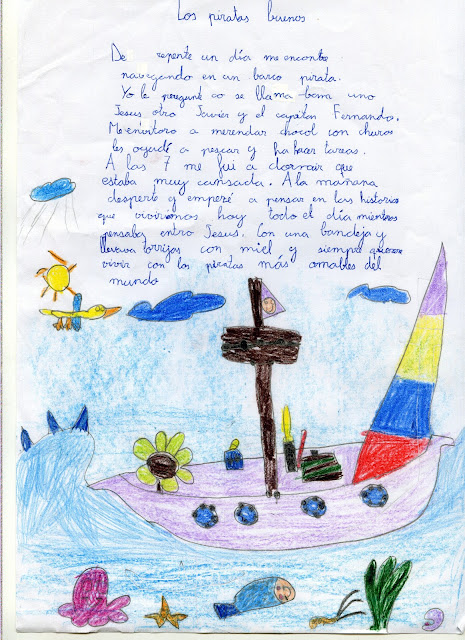 Los piratas buenos
De repente un día me encontre
navegando en un barco pirata.
Yo le pregunté co se llama-bam uno
Jesus otro Javier y el capitan Fernando.
Me invitaro a merendar chocol con churos
les ayudé a pescar y ha hacer tareas.
A las 7 me fui a dormir que
estaba muy cansada. A la mañana
desperte y empezé a pensar en las historias
que viviriamos hoy todo el día mientras
pensaba entro Jesus. Con una bandeja y
llevava torrijas con miel y siempre
vivir con los piratas más amables del
mundo